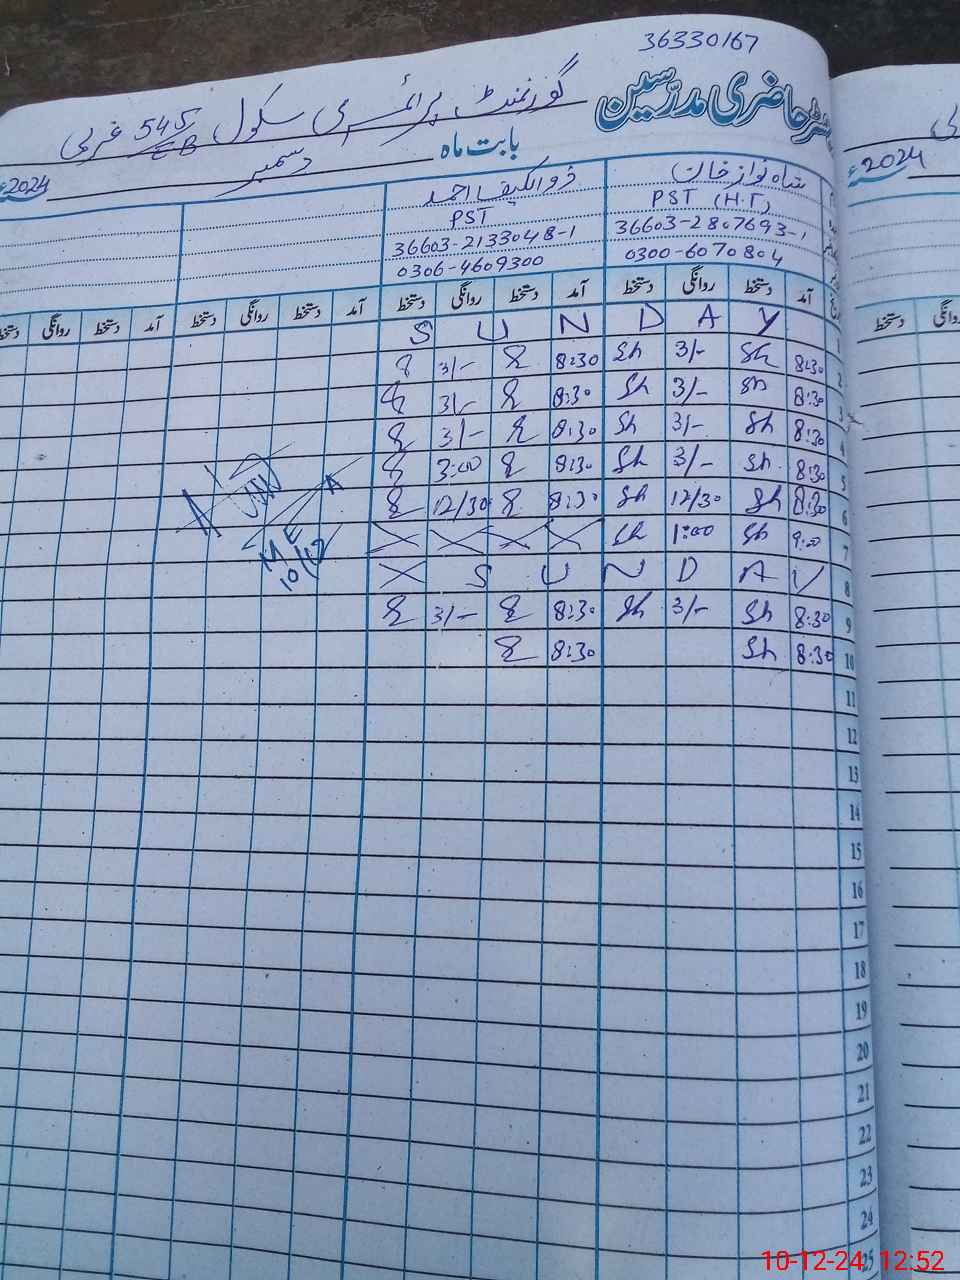 36330167
رجسٹر حاضری مدرسین گورنمنٹ پرائمری سکول 545 EB غربی
بابت ماہ دسمبر 2024ء
شاہ نواز خان ذوالکیف احمد
PST (H.T) PST
36603-2807693-1 36603-2133048-1
0300-6070804 0306-4609300
آمد دستخط روانگی دستخط آمد دستخط روانگی دستخط آمد دستخط روانگی دستخط آمد دستخط روانگی دستخط
1 S U N D A Y
2 8:30 Sh 3/- Sh 8:30 3/-
3 8:30 Sh 3/- Sh 8:30 3/-
4 8:30 Sh 3/- Sh 8:30 3/-
5 8:30 Sh 3/- Sh 8:30 3:00
6 8:30 Sh 12/30 Sh 8:30 12/30
7 9:00 Sh 1:00 Sh X X X X
8 X S U N D A Y
9 8:30 Sh 3/- Sh 8:30 3/-
10 8:30 Sh 8:30
A
M E A
10/12
11
12
13
14
15
16
17
18
19
20
21
22
23
24
25
2024ء
دستخط روانگی
10-12-24, 12:52